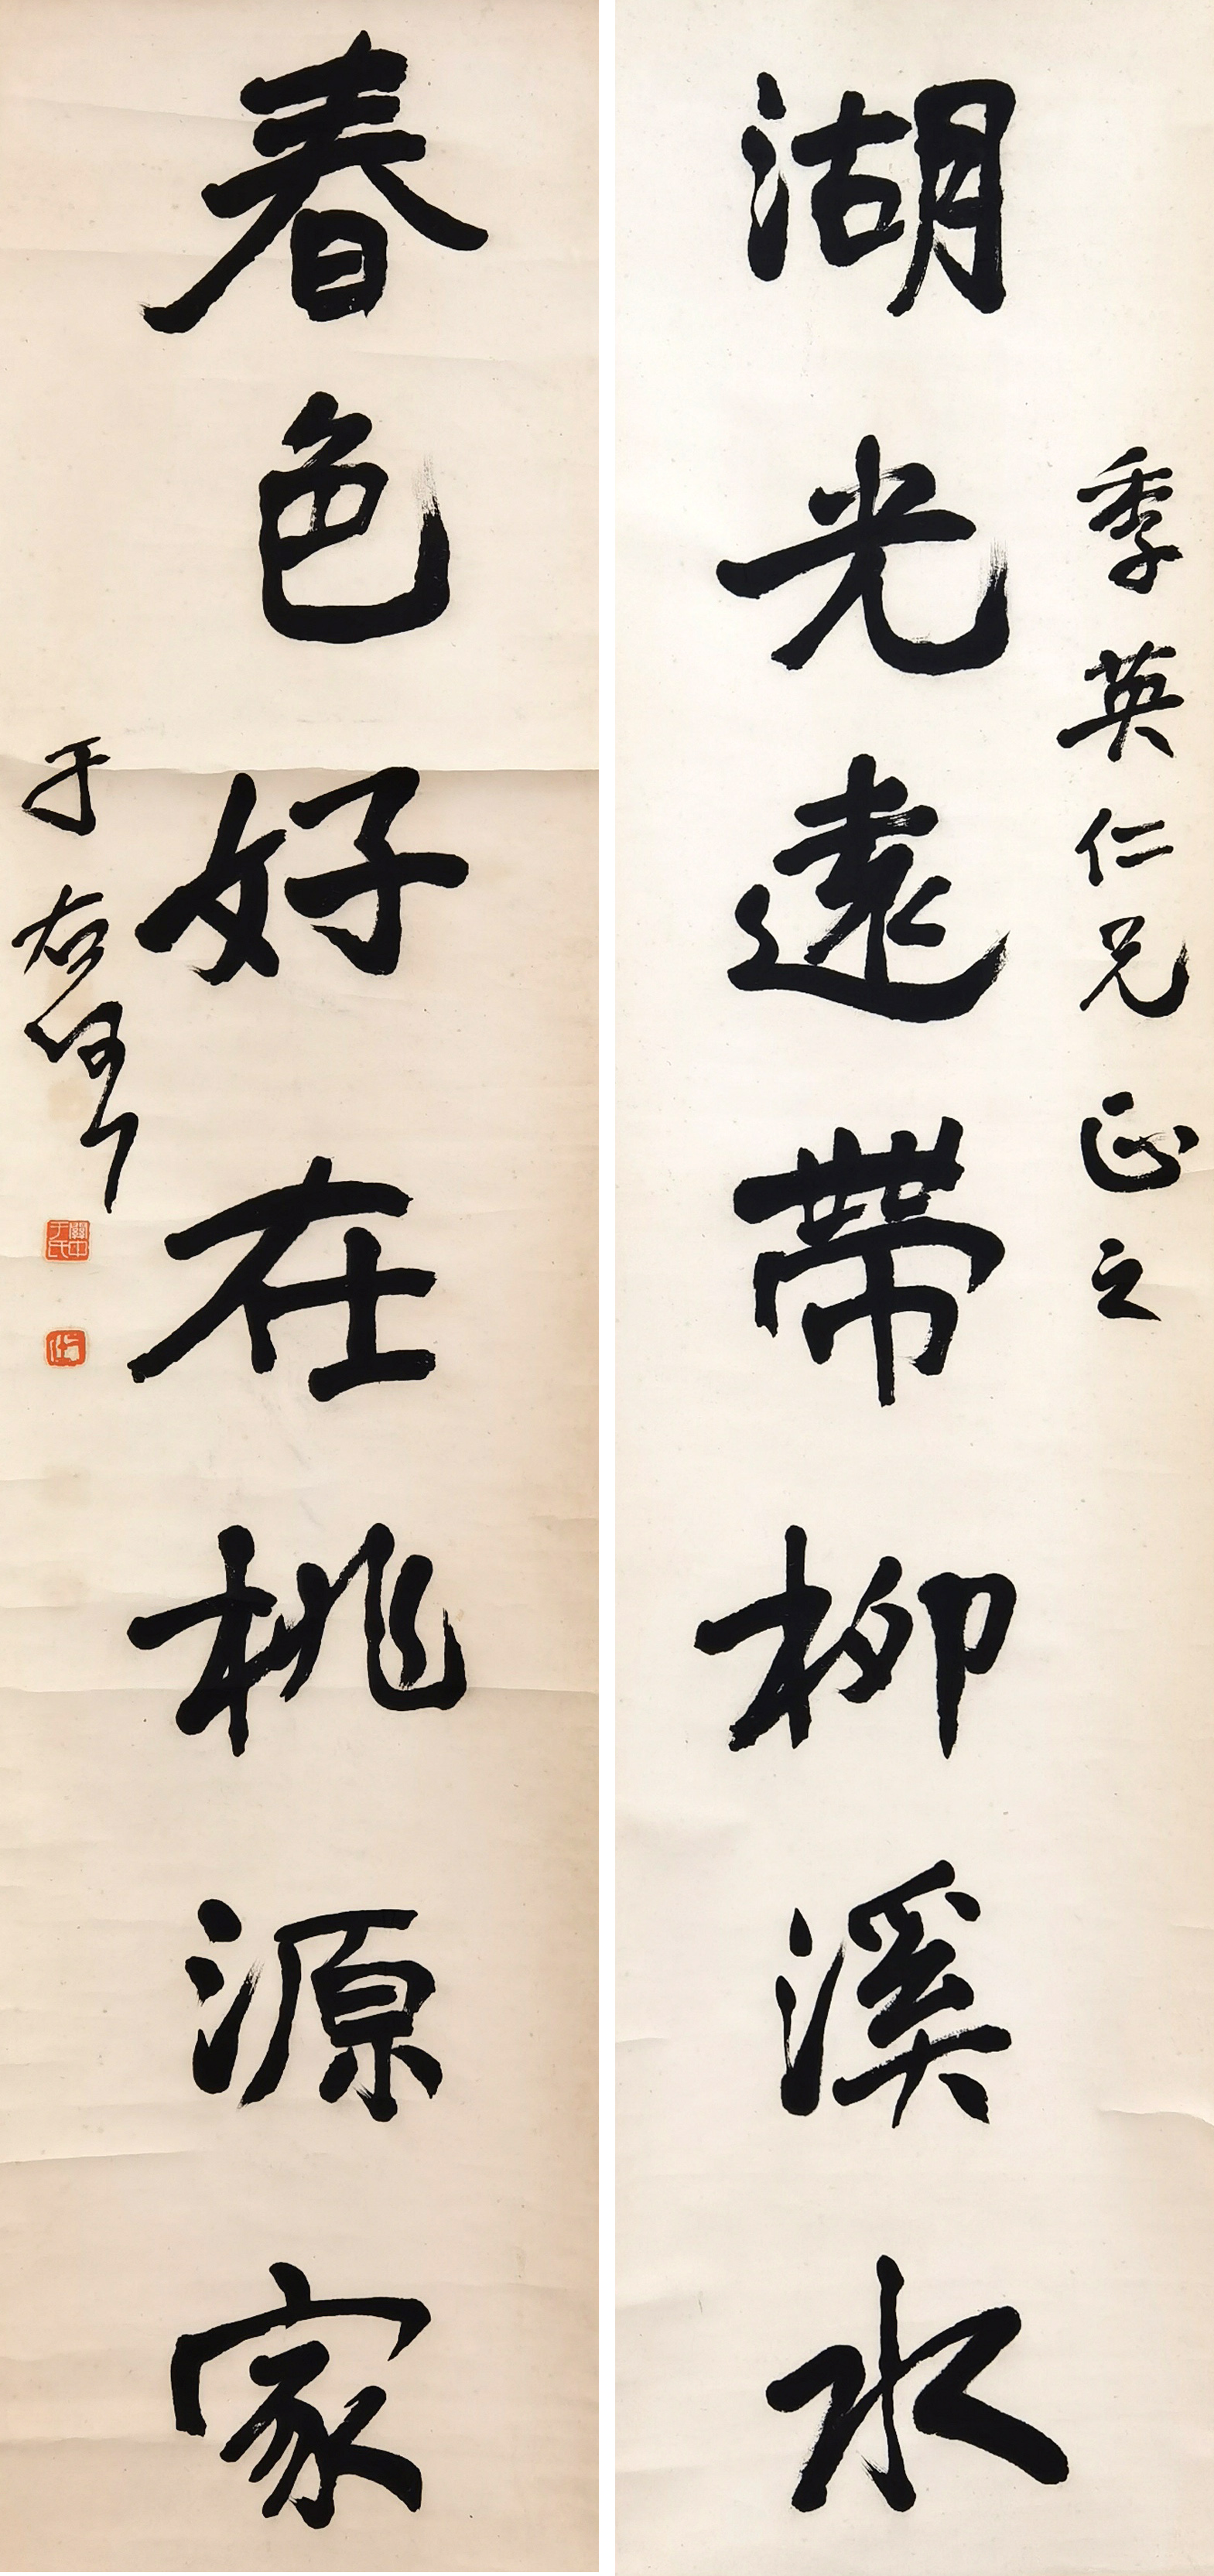 季英仁兄正之
湖光遠帶柳溪水
春色好在桃源家
于右任
關中于氏